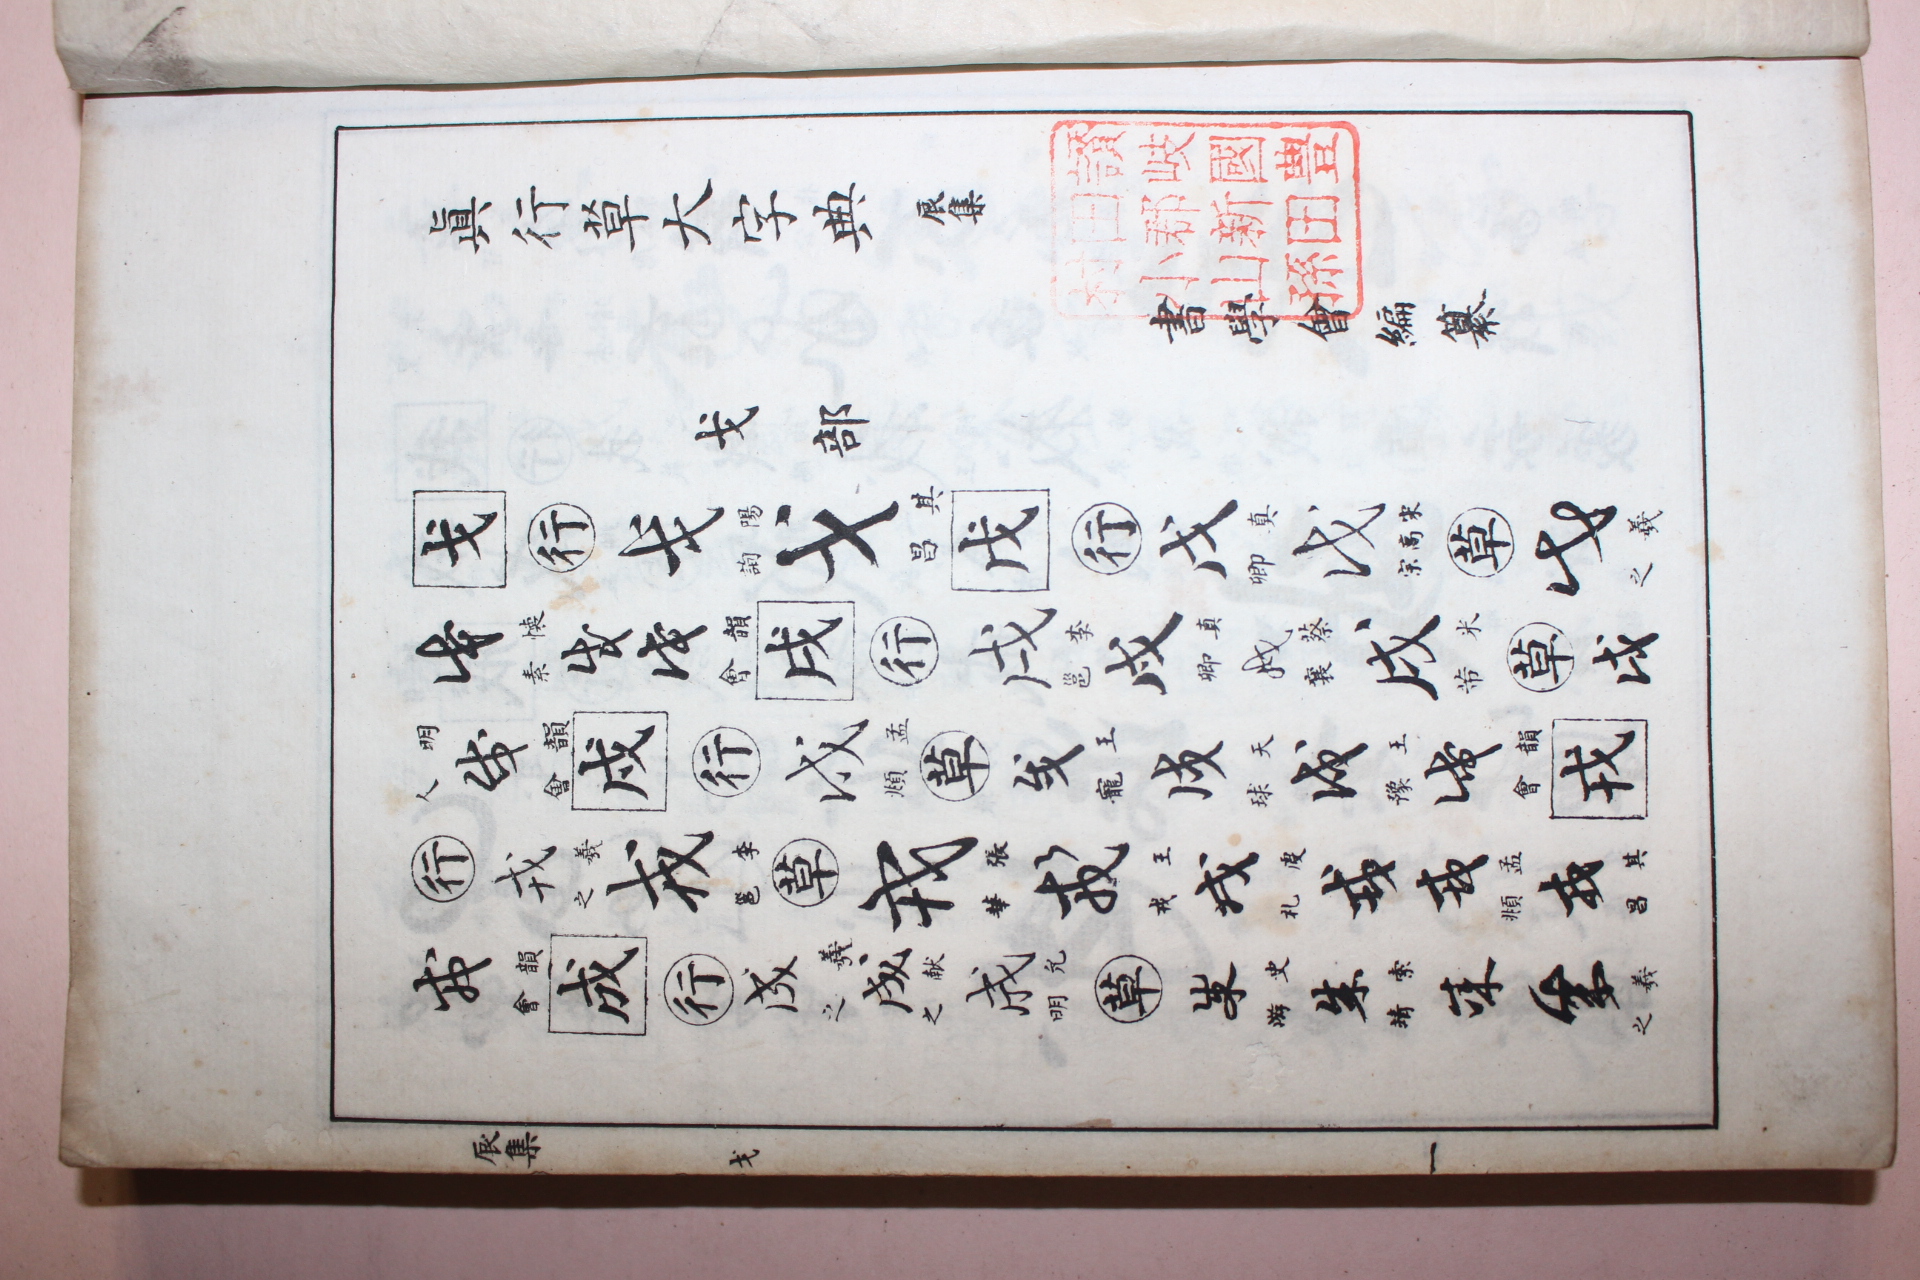 眞行草大字典 辰集
書學會編纂
讃岐國豊
田郡新田
村小山孫
戈部
戈 行 戈 陽詢 戈 其昌 戊 行 戊 真卿 戊 宋高宗 草 戊 羲之
戊 懐素 戊 戊 韻會 戌 行 戌 李邕 戌 真卿 戌 蔡襄 戌 米芾 草 戌
明人 戌 韻會 戍 行 戍 孟頫 草 戍 王寵 戍 天球 戍 王豫 戍 韻會 戎
行 戎 羲之 戎 李邕 草 戎 張華 戎 王戎 戎 虔礼 戎 戎 孟頫 戎 其昌
戎 韻會 成 行 成 羲之 成 献之 成 允明 草 成 史游 成 索靖 成 成 羲之
辰集
戈
一